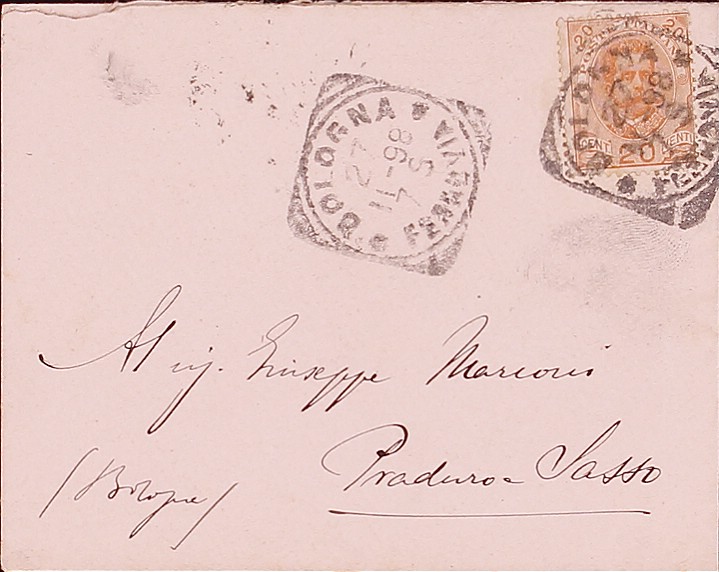 20 20
POSTE ITALIANE
CENT 20 VENTI
BOLOGNA
27
11-98
5
FERROVIA
Al sig. Giuseppe Marconi
Praduro e Sasso
(Bologna)